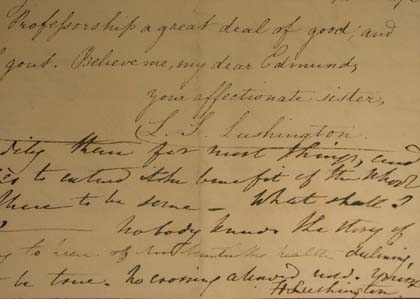 Professorship a great deal of good, and
gout. Believe me, my dear Edmund,
your affectionate sister,
L. S. Lushington.
them for most things, and
to extend the benefit of the whole
there to be some – What shall I
? nobody knows the story of
to hear of health declining,
be true. No crossing allowed now. Yours
H Lushington